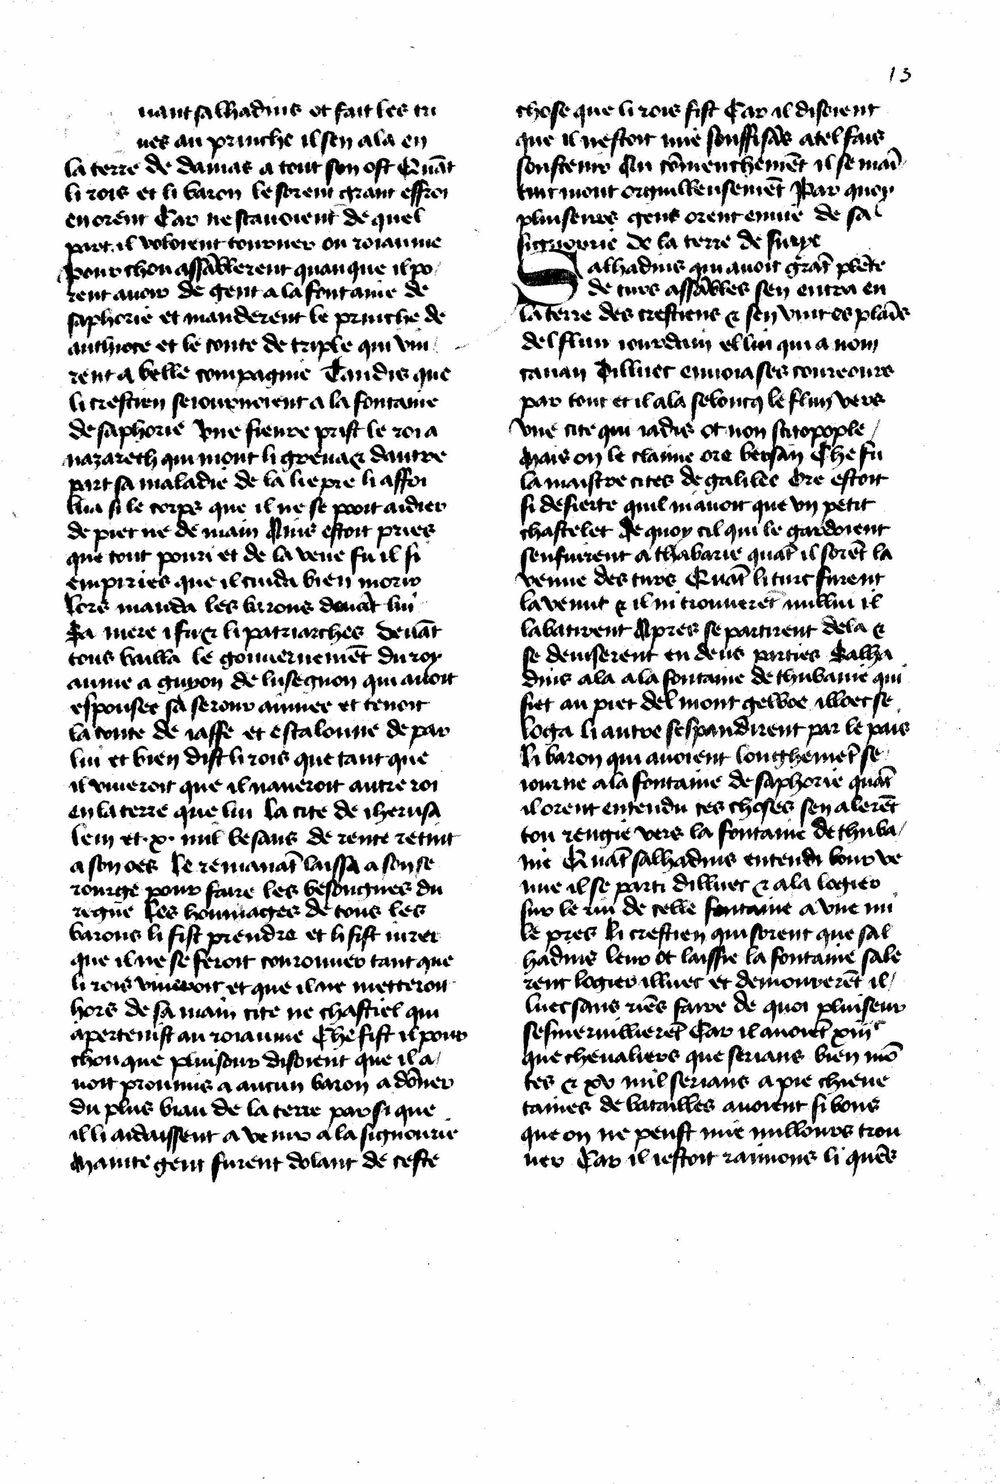 13
uant salhadins et fait les tri
ues au prinche il sen ala en
la terre de damas a tout son ost Quāt
li rois et li baron le sorent grant effroi
en orēnt Car ne scauoient de quel
part il voloient tourner ou roiaume
Pour chou assāblerent quanque il po
rent auoir de gent a la fontaine de
saphorie et manderent le prinche de
anthioce et le conte de triple qui vin
rent a belle compagnie Tandis que
li crestien seiournoient a la fontaine
de saphorie vne fieure prist le roi a
nazareth qui mont li greua & dautre
part sa maladie de la liepre li affoi
blia si le corps que il ne se pooit aidier
de piet ne de main Ains estoit pries
que tout pouri et de la veue fu il si
empiries que il cuida bien morir
Lors manda les barons deuāt lui
Sa mere i fu & li patriarches deuāt
tous bailla le gouuernemēt du roy
aume a guyon de lusegnon qui auoit
espousee sa serour ainnee et tenoit
la conte de iaffe et escalonne de par
lui et bien dist li rois que tant que
il viueroit que il naueroit autre roi
en la terre que lui La cite de iherusa
lem et .x. mil besans de rente retint
a son oes Le remanāt laissa a son se
rourge pour faire les besongnes du
regne Les hommages de tous les
barons li fist prendre et li fist iurer
que il ne se feroit couronner tant que
li rois viueroit et que il ne metteroit
hors de sa main cite ne chastiel qui
apertenist au roiaume Che fist il pour
chou que pluisour disoient que il a
uoit proumis a aucun baron a dōner
du plus biau de la terre par si que
il li aidaissent a venir a la signourie
Mainte gent furent dolant de ceste
chose que li rois fist Car il disoient
que il nestoit mie souffisās a tel fais
soustenir Au cōmenchemēt il se main
tint mont orguilleusemēt Par quoy
pluiseurs gens orent enuie de sa
signourie de la terre de surye
Salhadins qui auoit grāt plēte
de turs assābles sen entra en
la terre des crestiens & sen vint es plaīs
del flun iourdain el lui qui a nom
canan Dilluec enuoia ses coureours
par tout et il ala seloncq le flun vers
vne cite qui iadis ot non scitopople
Mais on le claime ore bersan Che fu
la maistre cites de galilee Ore estoit
si desierte quil ni auoit que vn petit
chastelet de quoy cil qui le gardoient
senfuirent a thabarie quāt il sorēt la
venue des turs Quāt li turc furent
la venut & il ni trouuerēt nullui il
labatirent Apres se partirent de la &
se deuiserent en deus parties Salha
dins ala a la fontaine de thubanie qui
siet au piet del mont gelboe illoec se
loga li autre sespandirent par le pais
Li baron qui auoient longhemēt se
iourne a la fontaine de saphorie quāt
il orent entendu ces choses sen alerēt
tou rengie vers la fontaine de thuba
nie Quāt salhadins entendi lour ve
nue il se parti dilluec & ala logier
sur le riu de celle fontaine a vne mi
le pres Li crestien qui sorent que sal
hadins leur ot laissie la fontaine sale
rent logier illuec et demourerēt il
luec sans riēs faire de quoi pluiseur
sesmeruillierēt Car il auoiēt xiiiᶜ
que cheualiers que serians bien mō
tes & xv mil serians a pie chieue
taines de batailles auoient si bons
que on ne peust mie millours trou
uer Car il i estoit raimons li quēs